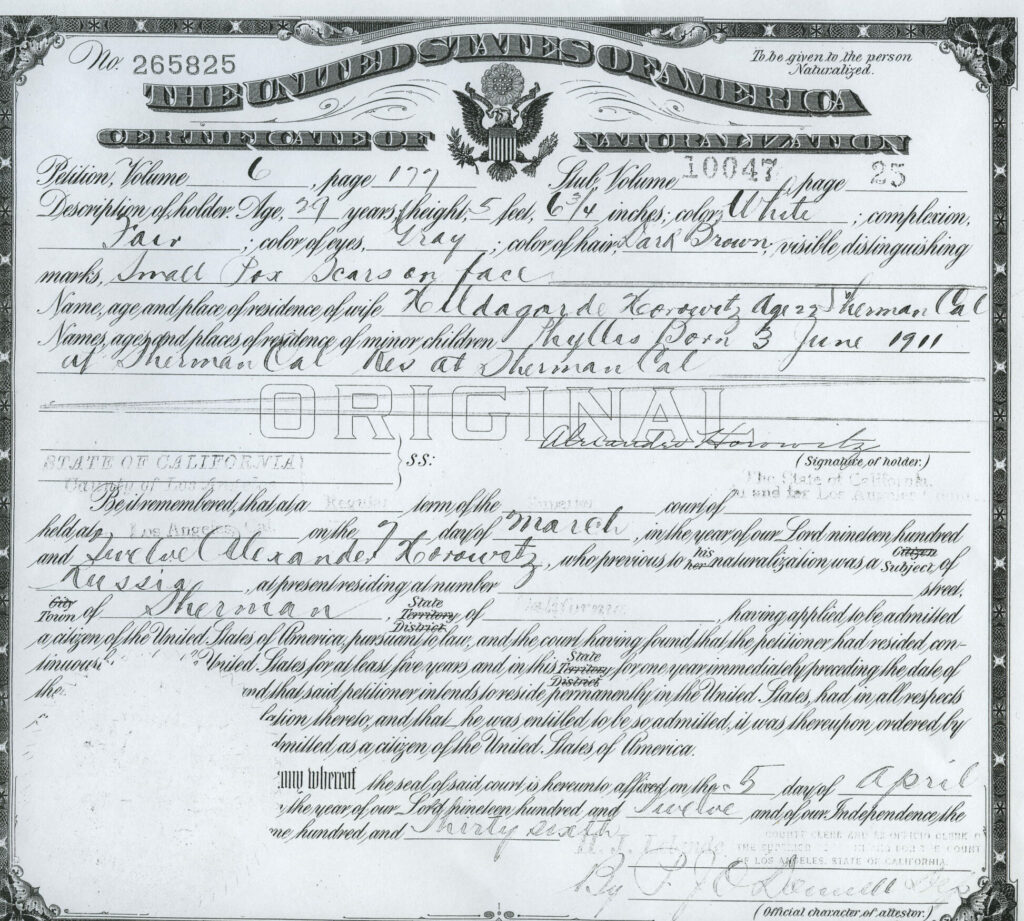 No. 265825
To be given to the person Naturalized.
THE UNITED STATES OF AMERICA
CERTIFICATE OF NATURALIZATION
Petition, Volume 6, page 177 Stub, Volume 10047, page 25
Description of holder: Age, 29 years; height, 5 feet, 6 3/4 inches; color, White; complexion,
Fair; color of eyes, Gray; color of hair, Dark Brown; visible distinguishing
marks, Small Pox Scars on face
Name, age and place of residence of wife Hildagarde Horowitz Age 22 Sherman Cal
Names, ages and places of residence of minor children Phyllis Born 3 June 1911
at Sherman Cal Res at Sherman Cal
ORIGINAL
Alexander Horowitz
STATE OF CALIFORNIA } S.S: (Signature of holder.)
County of Los Angeles
The State of California,
in and for Los Angeles County
Be it remembered, that at a Regular term of the Superior court of
held at Los Angeles, Cal. on the 7 day of March, in the year of our Lord nineteen hundred
and Twelve Alexander Horowitz, who previous to his her naturalization was a Citizen Subject of
Russia, at present residing at number street,
City Town of Sherman, State Territory District of California, having applied to be admitted
a citizen of the United States of America, pursuant to law, and the court having found that the petitioner had resided con-
tinuous United States for at least five years and in this State Territory District for one year immediately preceding the date of
the and that said petitioner intends to reside permanently in the United States, had in all respects
lation thereto, and that he was entitled to be so admitted, it was thereupon ordered by
dmitted as a citizen of the United States of America.
ony whereof the seal of said court is hereunto affixed on the 5 day of April
the year of our Lord nineteen hundred and Twelve and of our Independence the
ne hundred and Thirty Sixth
COUNTY CLERK AND EX-OFFICIO CLERK OF
THE SUPERIOR COURT IN AND FOR THE COUNTY
OF LOS ANGELES, STATE OF CALIFORNIA.
By P. J. O'Donnell
(Official character of attester.)